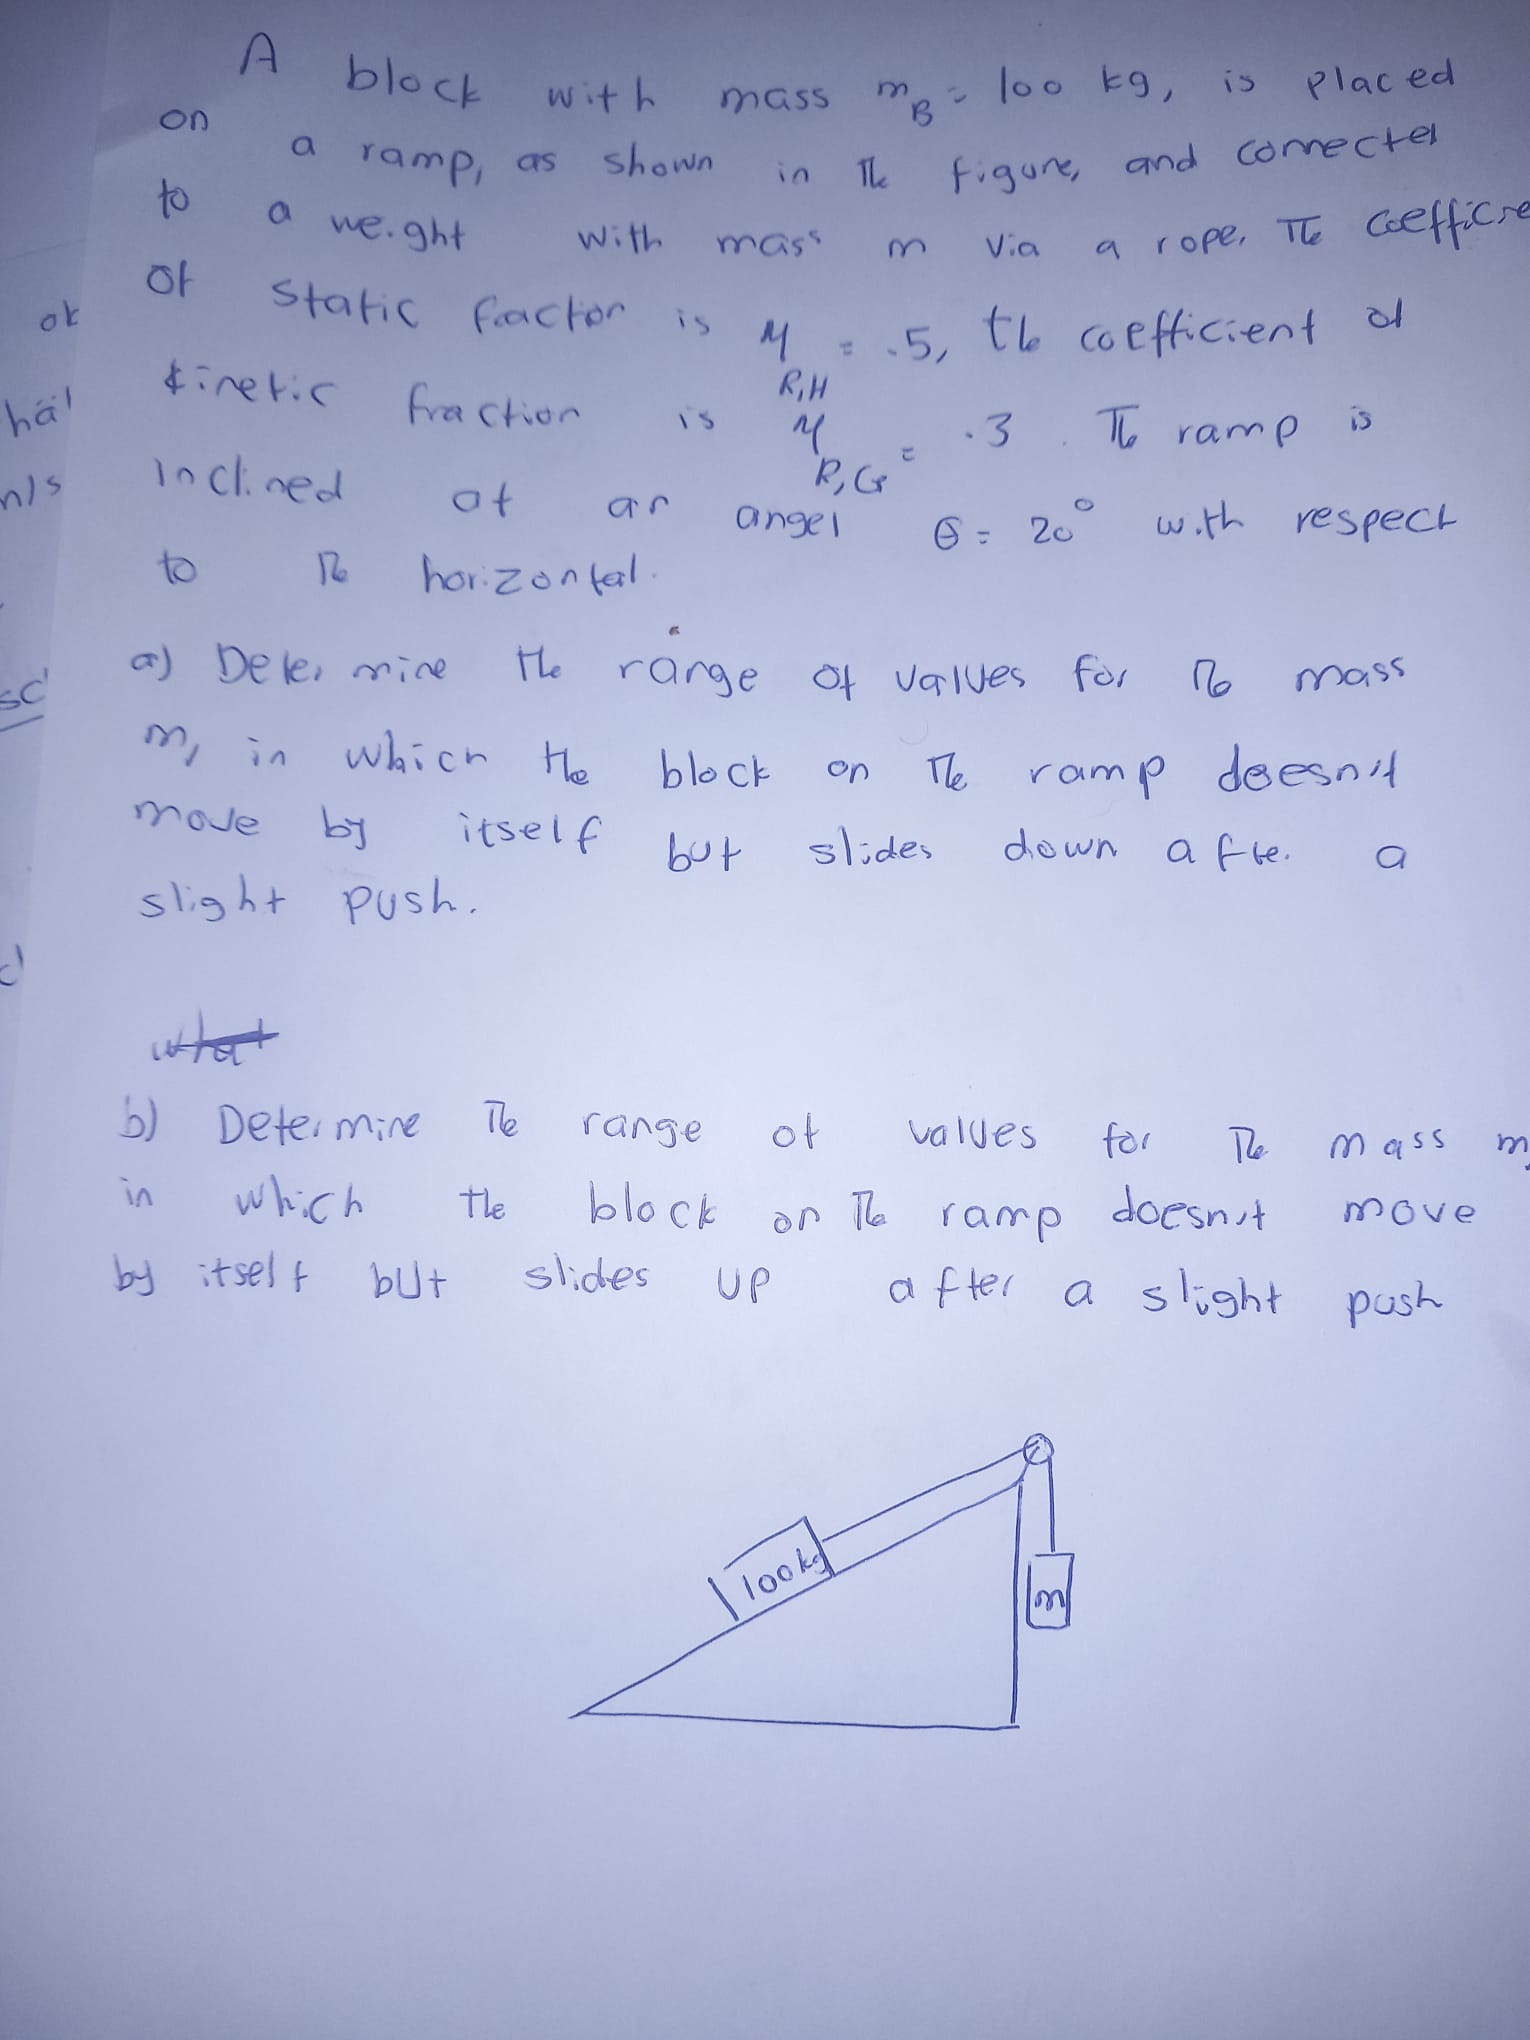 A block with mass m_B = 100 kg, is placed
on a ramp, as shown in the figure, and connected
to a weight with mass m via a rope. The coefficie
of static fraction is μ_R,H = .5, the coefficient of
kinetic fraction is μ_R,G = .3. The ramp is
inclined at an angel θ = 20° with respect
to the horizontal.
a) Determine the range of values for the mass
m, in which the block on the ramp doesn't
move by itself but slides down after a
slight push.
what
b) Determine the range of values for the mass m,
in which the block on the ramp doesn't move
by itself but slides up after a slight push
100kg
m
ok
häl
n/s
sc